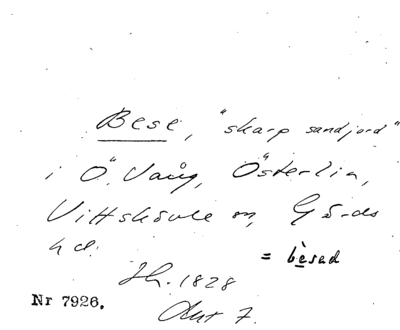 Bese, "skarp sandjord"
i Ö. Vång, Österlin,
Vittskövle sn, Gärds
hd.
= bèsad
Sk. 1828
Nr 7926.
Akt 7.